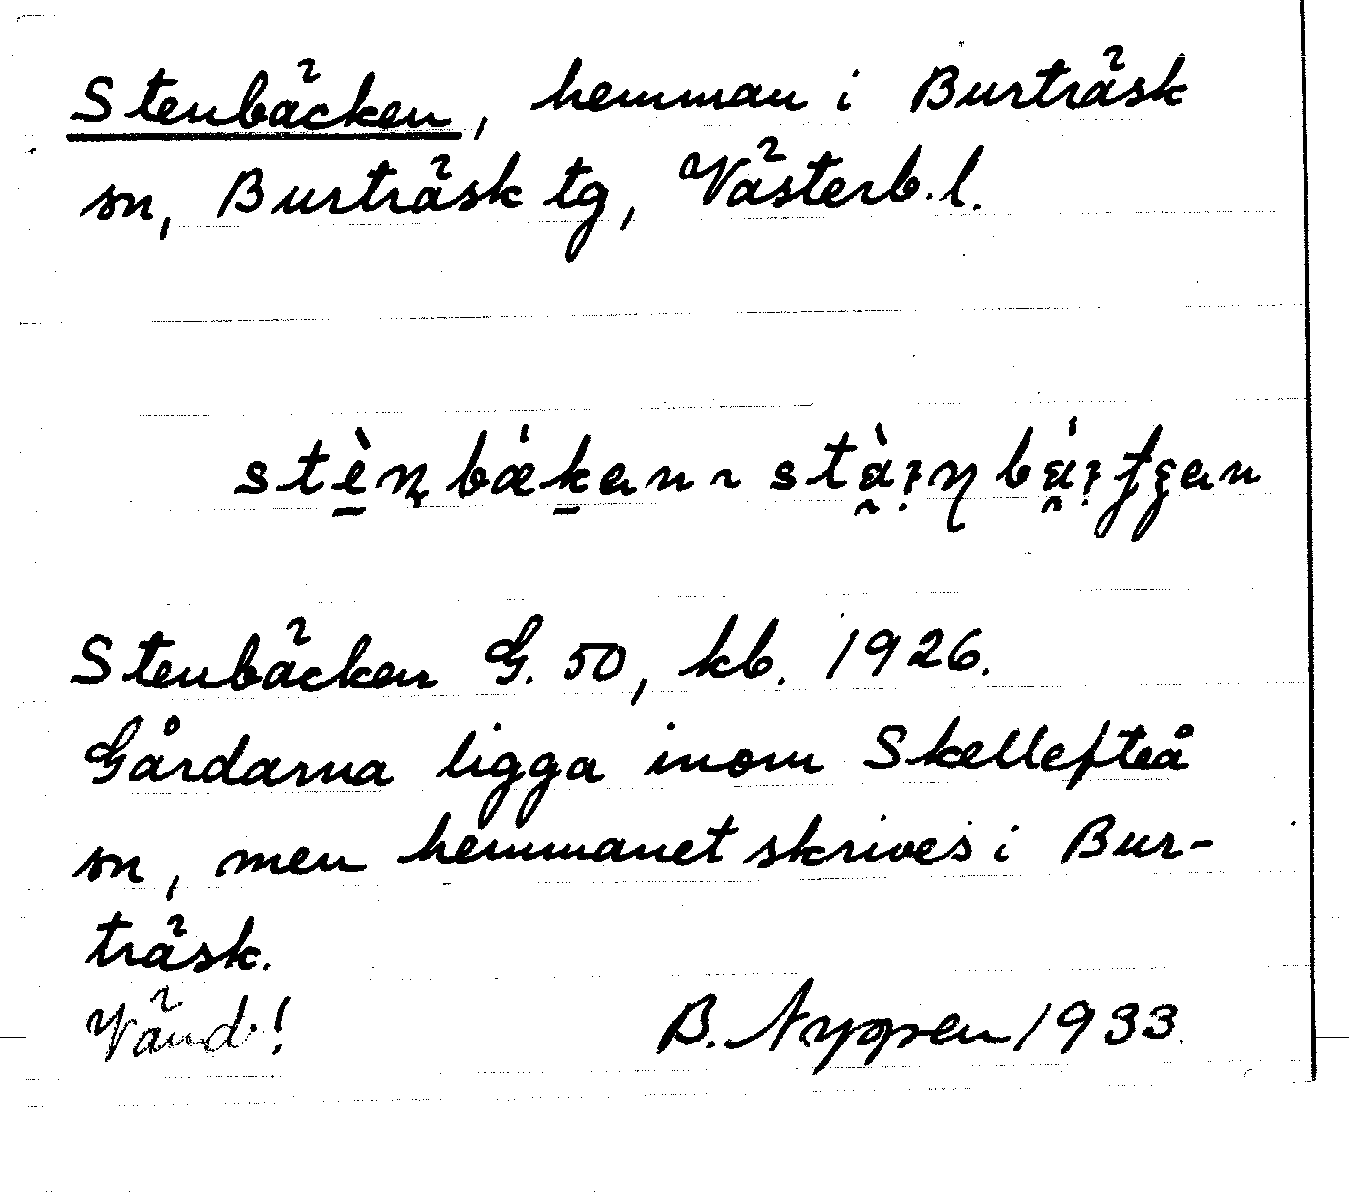 Stenbäcken, hemman i Burträsk
sn, Burträsk tg, Västerb. l.
Stenbäcken G. 50, kb. 1926.
Gårdarna ligga inom Skellefteå
sn, men hemmanet skrives i Bur-
träsk.
Vänd!
B. Nygren 1933.